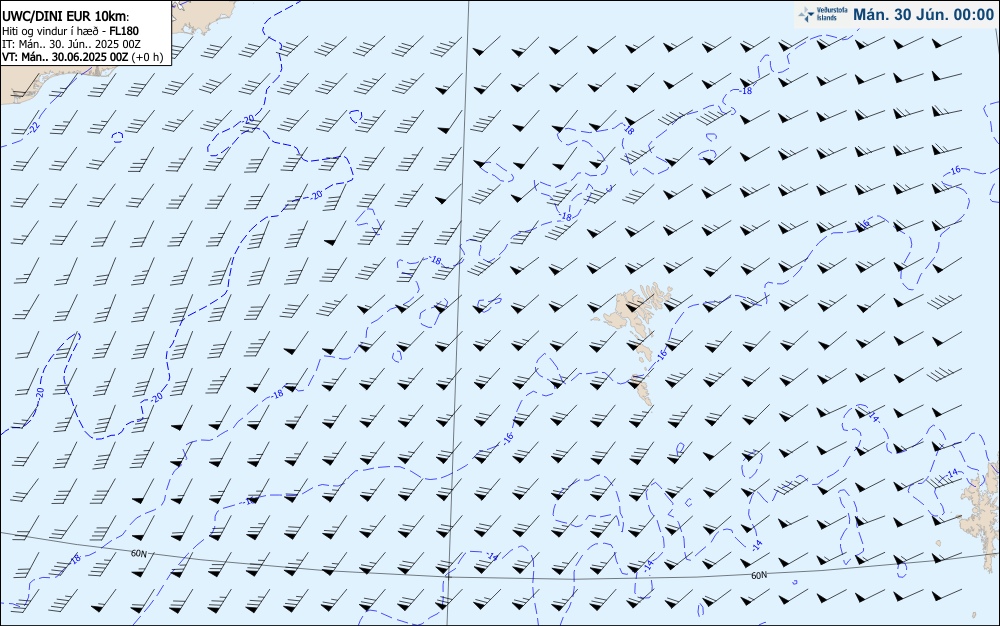 UWC/DINI EUR 10km:
Hiti og vindur í hæð - FL180
IT: Mán.. 30. Jún.. 2025 00Z
VT: Mán.. 30.06.2025 00Z (+0 h)
Veðurstofa
Íslands
Mán. 30 Jún. 00:00
-18
-20
-22
-18
-16
-20
-18
-16
-18
-16
-20
-18
-20
-14
-16
-14
-14
60N
-18
-14
-14
60N